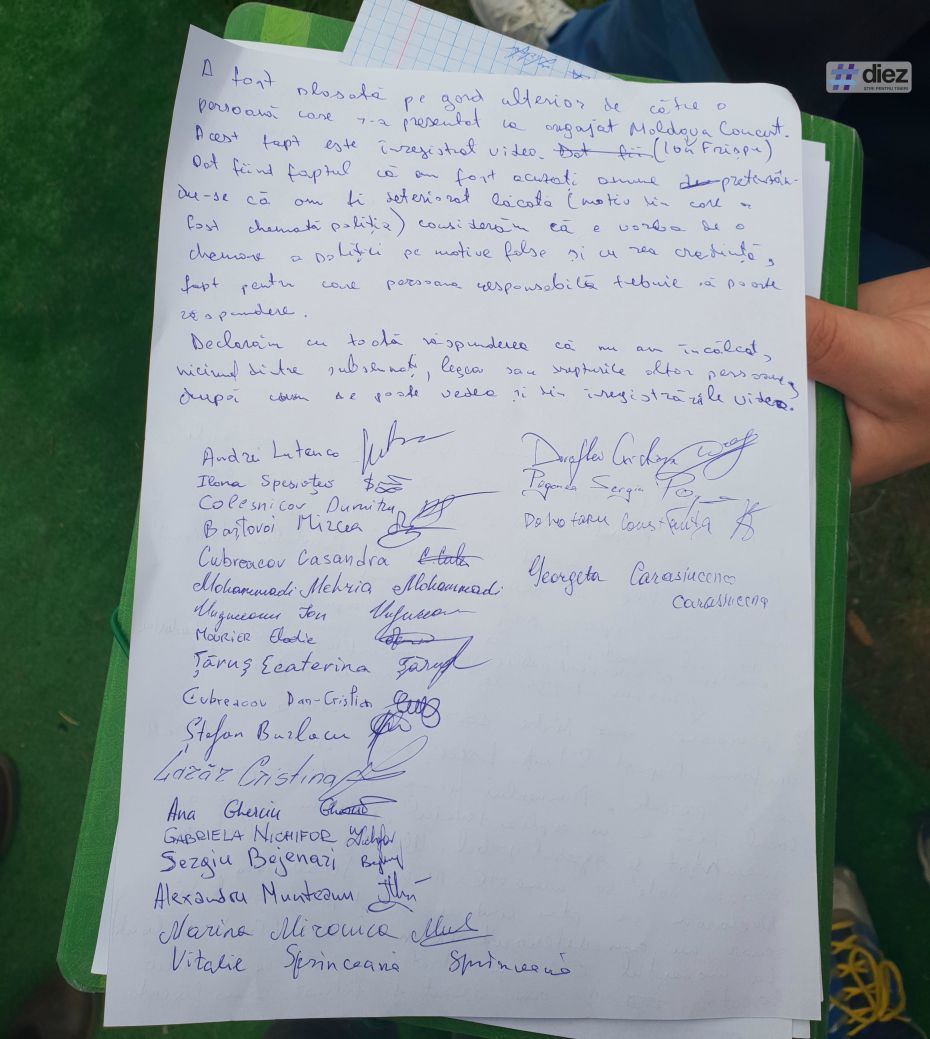 #diez
ȘTIRI PENTRU TINERI
A fost plasată pe gard ulterior de către o
persoană care s-a prezentat ca angajat Moldova Concert.
Acest fapt este înregistrat video. Dat fii (Ion
Dat fiind faptul că am fost acuzați anume pretinzân-
du-se că am fi deteriorat lăcata (motiv din care a
fost chemată poliția) considerăm că e vorba de o
chemare a poliției pe motive false și cu rea credință,
fapt pentru care persoana responsabilă trebuie să poarte
răspundere.
Declarăm cu toată răspunderea că nu am încălcat,
niciunul dintre subsemnați, legea sau drepturile altor persoane,
după cum se poate vedea și din înregistrările video.
Andrei Lutenco
Ilona Spesivțev
Colesnicov Dumitru
Baștovoi Mircea
Cubreacov Casandra
Mohammadi Mehria Mohammadi
Ion
MOURIER Elodie
Țăruș Ecaterina
Cubreacov Dan-Cristian
Ștefan Buzlacu
Lazăr Cristina
Ana Gherciu
GABRIELA NICHIFOR
Sergiu Bejenari
Alexandru Munteanu
Marina Mironica
Vitalie Sprinceană Sprinceană
Sergiu
Dohotaru Constanța
Georgeta Carasiucenco